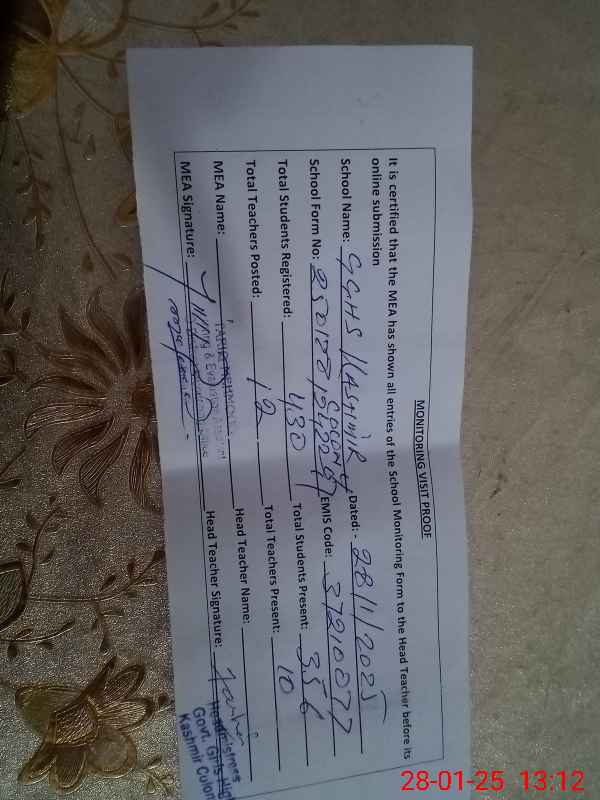 MONITORING VISIT PROOF
It is certified that the MEA has shown all entries of the School Monitoring Form to the Head Teacher before its
online submission
School Name: GGHS KASHMIR COLONY Dated: - 28/1/2025
School Form No: EMIS Code: 37210077
Total Students Registered: 430 Total Students Present: 356
Total Teachers Posted: 12 Total Teachers Present: 10
MEA Name: Head Teacher Name:
MEA Signature: Head Teacher Signature:
Headmistress
Govt. Girls High
Kashmir Colon
28-01-25 13:12